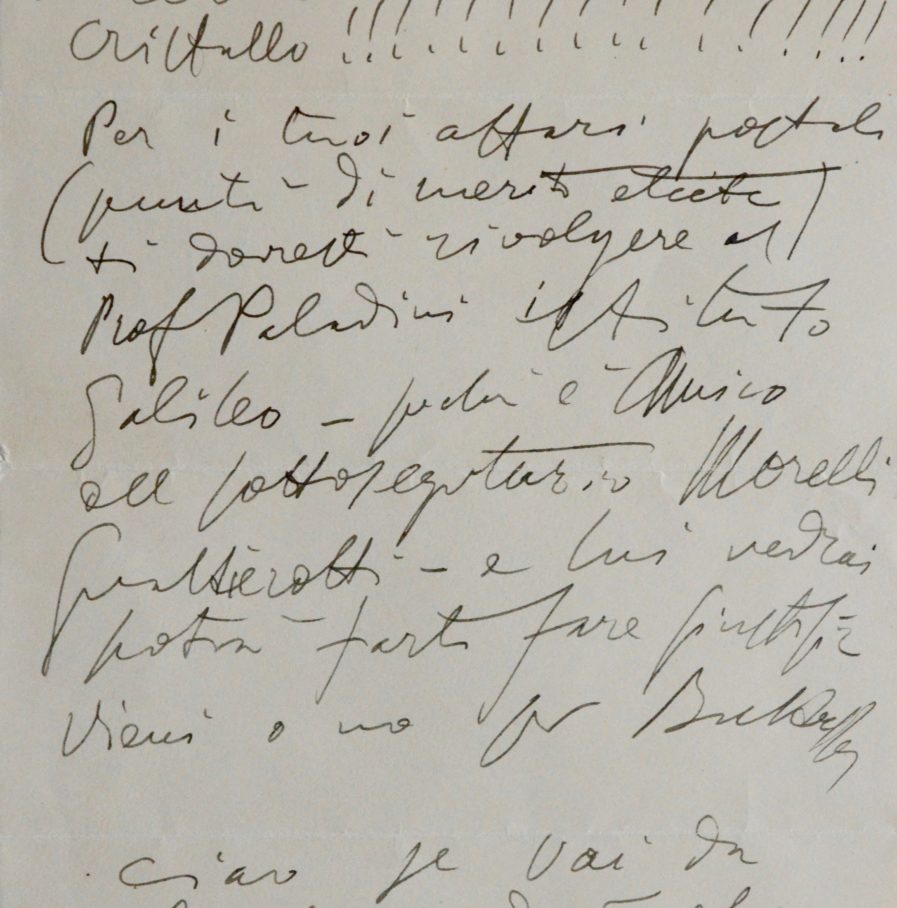 Cristallo !!!!!!!!!!!!!!!!
Per i tuoi affari postali
(punti di merito etcetc)
ti dovresti rivolgere al
Prof Paladini istituto
Galileo – perché è Amico
del sottosegretario Morelli
Gualtierotti – e lui vedrai
potrà farti fare giustizia
Vieni o no per
ciao se vai da